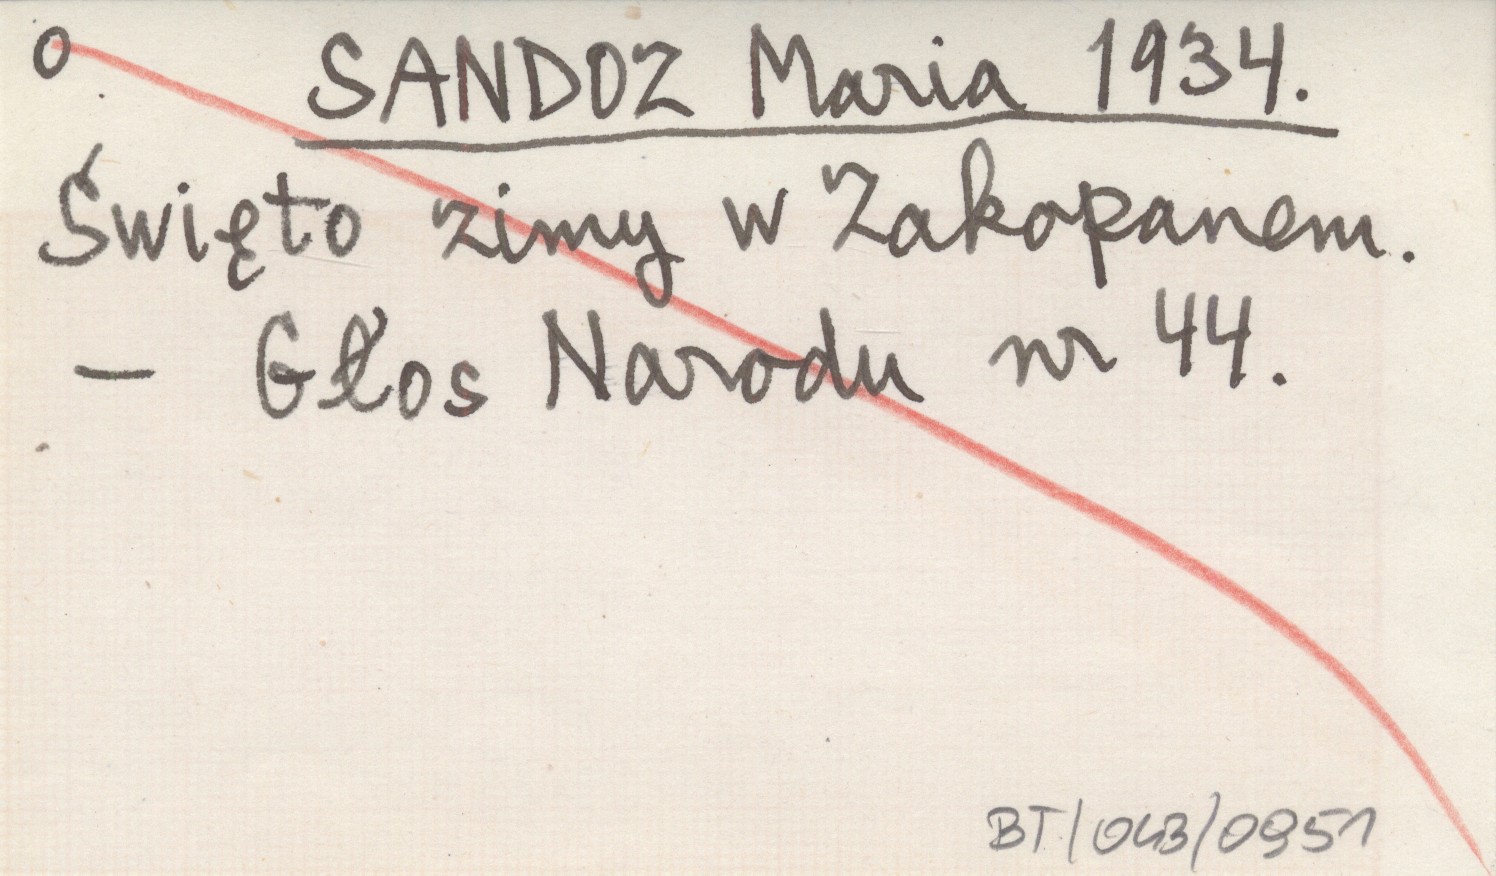 O SANDOZ Maria 1934.
Święto zimy w Zakopanem.
— Głos Narodu nr 44.
BT/043/0951